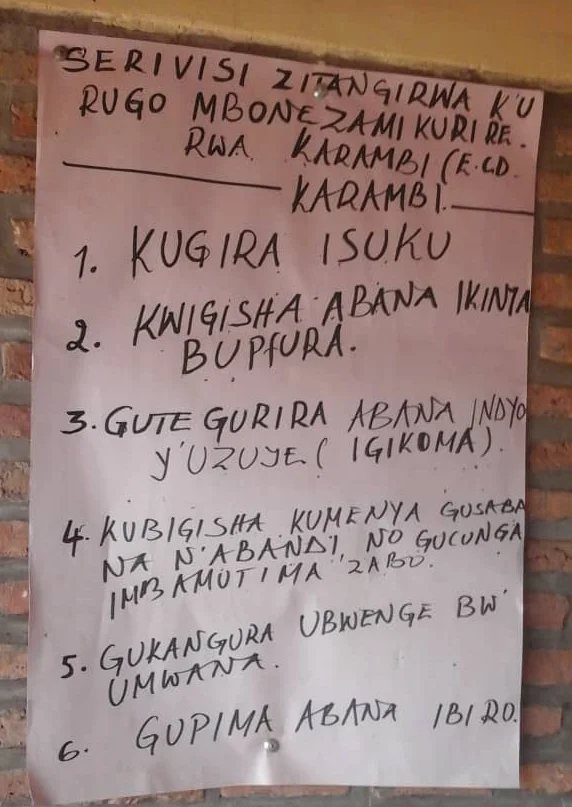 SERIVISI ZITANGIRWA K'U
RUGO MBONEZAMIKURIRE.
RWA KARAMBI (E.CD.
KARAMBI.
1. KUGIRA ISUKU
2. KWIGISHA ABANA IKINYA
BUPfURA.
3. GUTEGURIRA ABANA INDYO
Y'UZUYE ( IGIKOMA).
4. KUBIGISHA KUMENYA GUSABA
NA N'ABANDI, NO GUCUNGA
IMBAMUTIMA ZABO.
5. GUKANGURA UBWENGE BW'
UMWANA.
6. GUPIMA ABANA IBIRO.